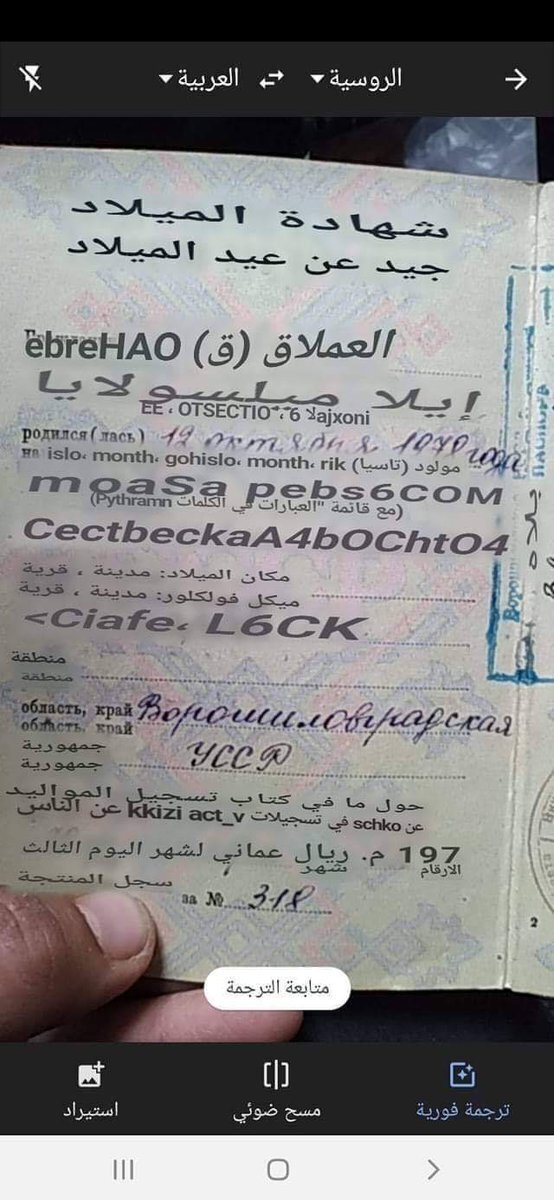 العربية
الروسية
شهادة الميلاد
جيد عن عيد الميلاد
العملاق (ق) ebreHAO
إيلا ميلسولايا
EE، OTSECTIO
родился(лась) 12 октября 1970 года
на islo، month، gohislo، month، rik (تاسيا) مولود
moaSa pebs6COM
(مع قائمة "العبارات في الكلمات Pythramn)
CectbeckaA4bOChtO4
مكان الميلاد: مدينة ، قرية
ميكل فولكلور: مدينة ، قرية
<Ciafe، L6CK
منطقة
منطقة
область, край Ворошиловградская
область, край
جمهورية
جمهورية УССР
حول ما في كتاب تسجيل المواليد
عن schko في تسجيلات kkizi act_v عن الناس
197 م. ريال عماني لشهر اليوم الثالث
الارقام شهر
سجل المنتجة
за № 318
2
متابعة الترجمة
استيراد
مسح ضوئي
ترجمة فورية